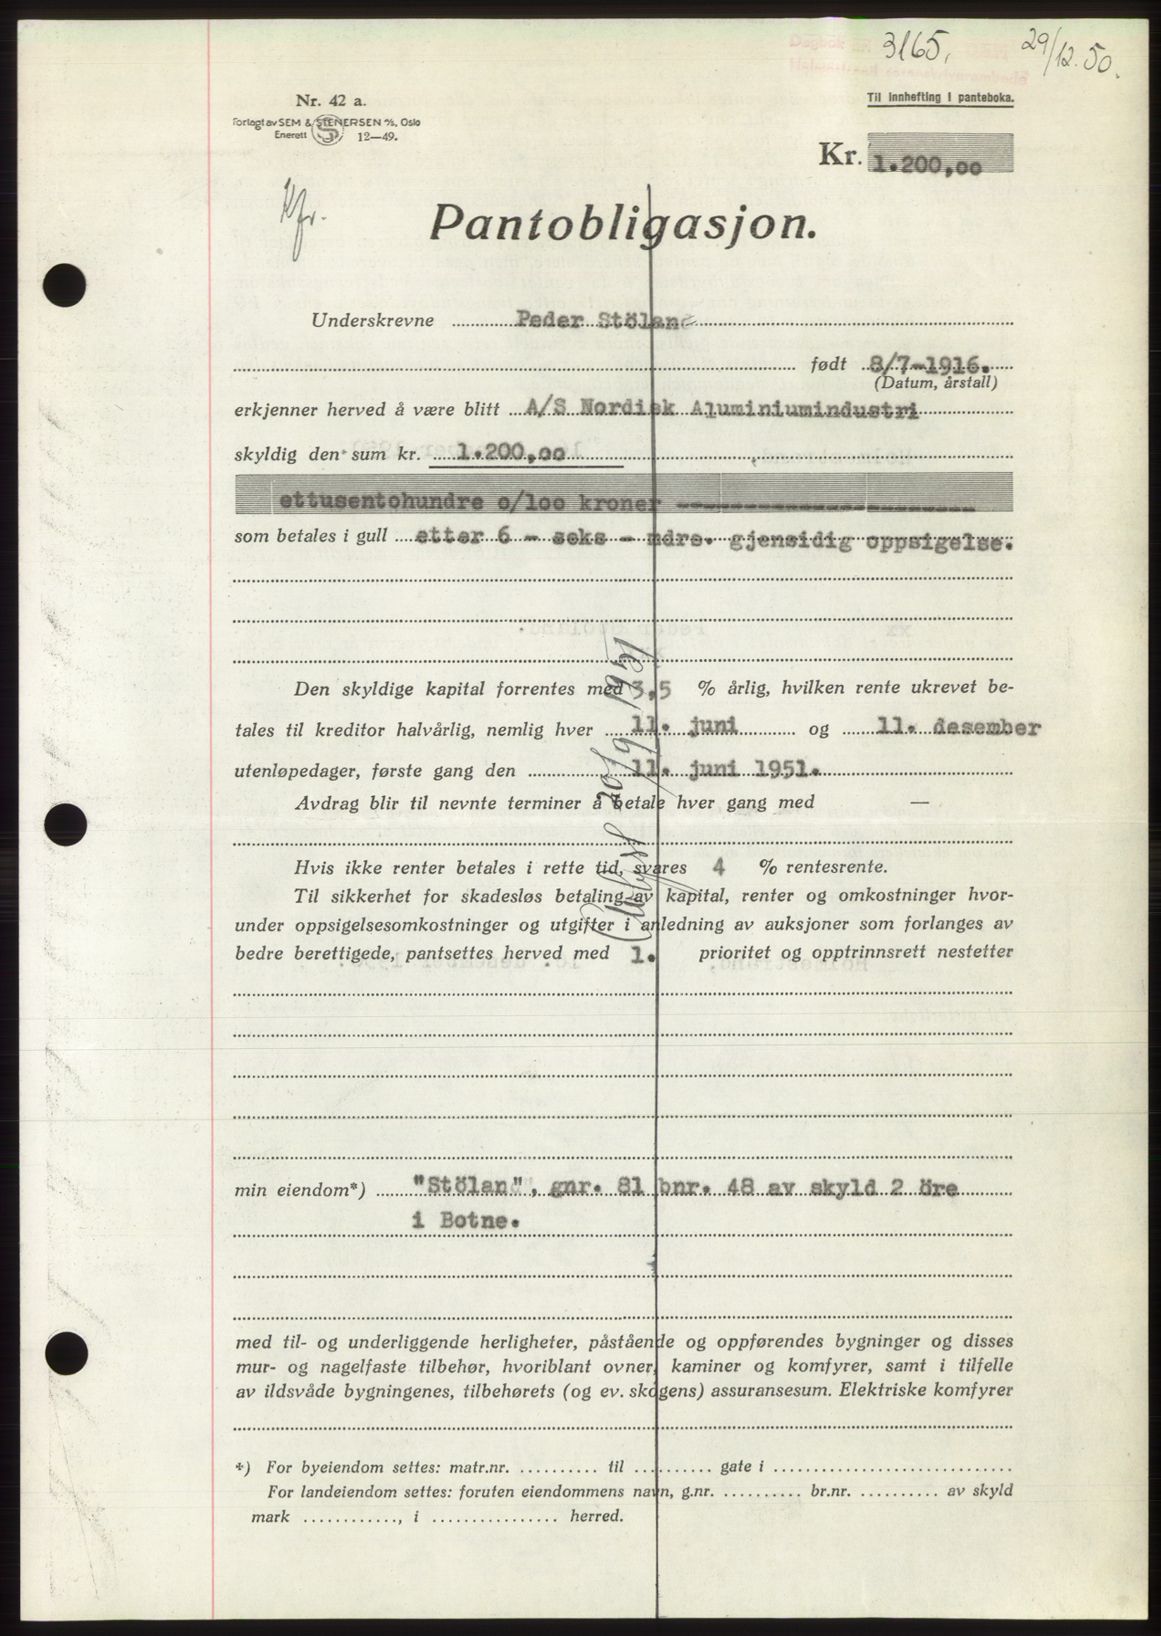 3165.
29/12.50.
Nr. 42 a.
Forlagt av SEM & STENERSEN A/S, Oslo
Enerett 12—49.
Til innhefting i panteboka.
Kr. 1.200,oo
Kfr.
Pantobligasjon.
Underskrevne Peder Stöland
født 8/7-1916.
(Datum, årstall)
erkjenner herved å være blitt A/S Nordisk Aluminiumindustri
skyldig den sum kr. 1.200,oo
ettusentohundre o/loo kroner --------------------
som betales i gull etter 6 - seks - mdrs. gjensidig oppsigelse.
Den skyldige kapital forrentes med 3,5 % årlig, hvilken rente ukrevet be-
tales til kreditor halvårlig, nemlig hver 11. juni og 11. desember
utenløpedager, første gang den 11. juni 1951.
Avdrag blir til nevnte terminer å betale hver gang med —
Hvis ikke renter betales i rette tid, svares 4 % rentesrente.
Til sikkerhet for skadesløs betaling av kapital, renter og omkostninger hvor-
under oppsigelsesomkostninger og utgifter i anledning av auksjoner som forlanges av
bedre berettigede, pantsettes herved med 1. prioritet og opptrinnsrett nestetter
Avlyst 20/9 1951
min eiendom*) "Stölan", gnr. 81 bnr. 48 av skyld 2 öre
i Botne.
med til- og underliggende herligheter, påstående og oppførendes bygninger og disses
mur- og nagelfaste tilbehør, hvoriblant ovner, kaminer og komfyrer, samt i tilfelle
av ildsvåde bygningenes, tilbehørets (og ev. skogens) assuransesum. Elektriske komfyrer
*) For byeiendom settes: matr.nr. .......... til .......... gate i ..............................
For landeiendom settes: foruten eiendommens navn, g.nr. .......... br.nr. .......... av skyld
mark ............, i ................ herred.